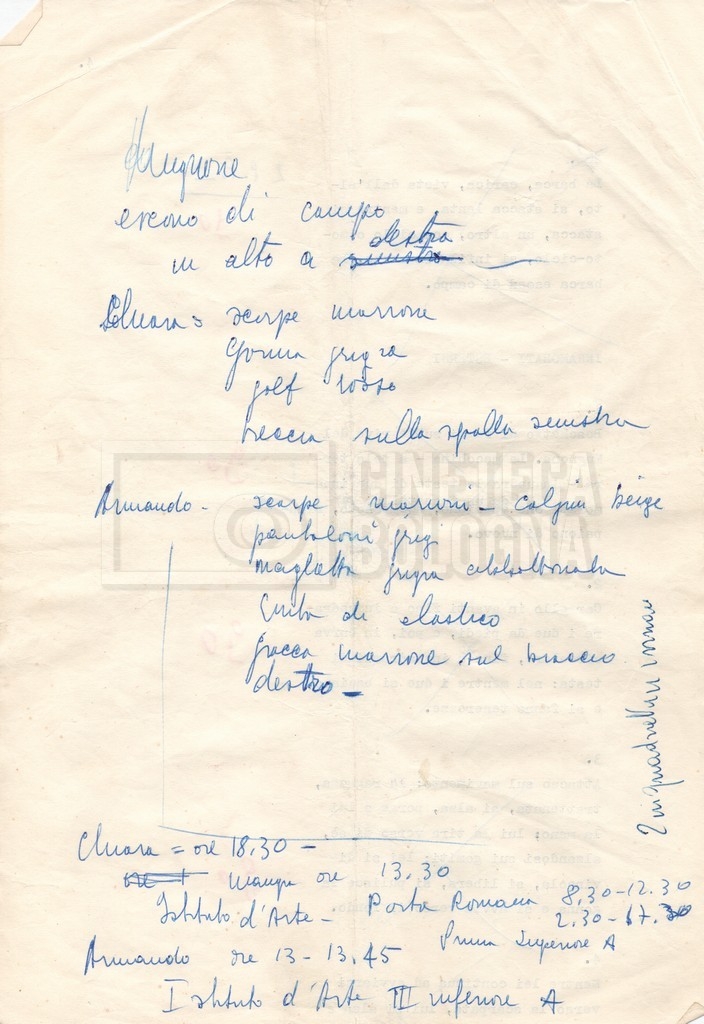 Mugnone
escono di campo
in alto a sinistra destra
Chiara = scarpe marrone
Gonna grigia
golf rosso
treccia sulla spalla sinistra
Armando - scarpe marroni - calzini beige
pantaloni grigi
maglietta grigia abbottonata
Cinta di elastico
giacca marrone sul braccio
destro -
Chiara = ore 18.30 -
mangia ore 13.30
Istituto d'Arte - Porta Romana 8.30-12.30
2.30-17.30
Prima Superiore A
Armando ore 13-13.45
Istituto d'Arte III inferiore A
2 inquadrature
CINETECA
BOLOGNA